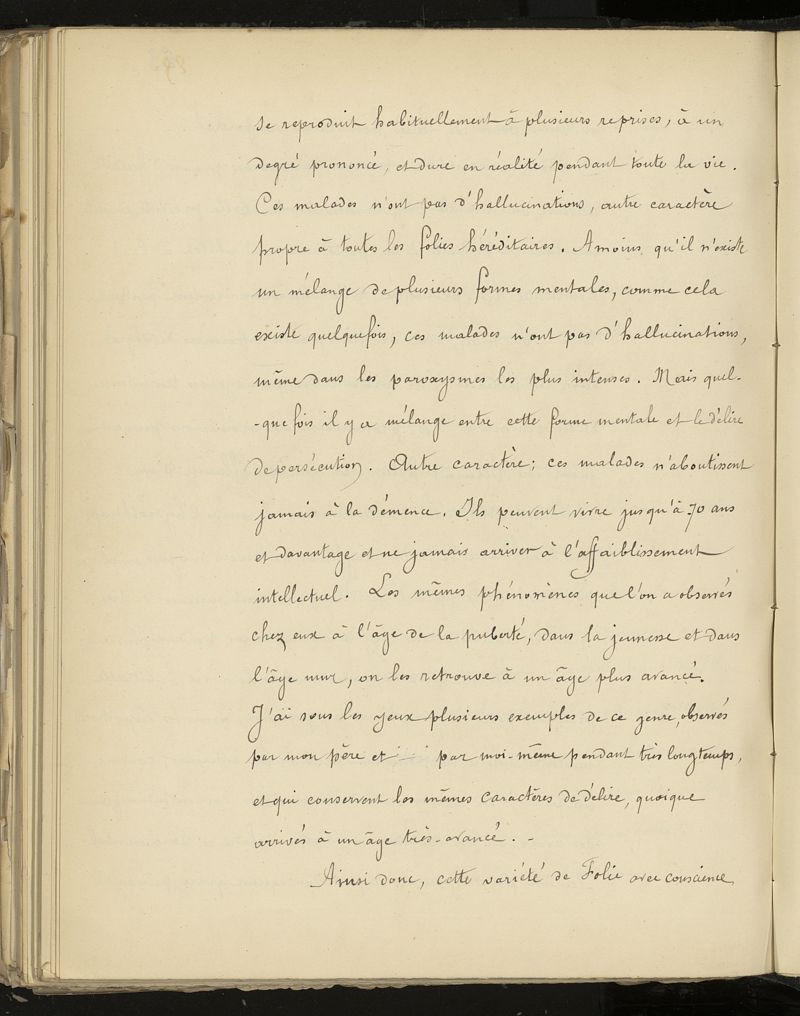 se reproduit habituellement à plusieurs reprises, à un
degré prononcé, et dure en réalité pendant toute la vie.
Ces malades n'ont pas d'hallucinations, autre caractère
propre à toutes les folies héréditaires. A moins qu'il n'existe
un mélange de plusieurs formes mentales, comme cela
existe quelquefois, ces malades n'ont pas d'hallucinations,
même dans les paroxysmes les plus intenses. Mais quel-
-que fois il y a mélange entre cette forme mentale et le délire
de persécution. Autre caractère; ces malades n'aboutissent
jamais à la démence. Ils peuvent vivre jusqu'à 70 ans
et davantage et ne jamais arriver à l'affaiblissement
intellectuel. Les mêmes phénomènes que l'on a observés
chez eux à l'âge de la puberté, dans la jeunesse et dans
l'âge mur, on les retrouve à un âge plus avancé.
J'ai sous les yeux plusieurs exemples de ce genre, observés
par mon père et par moi-même pendant très longtemps,
et qui conservent les mêmes caractères de délire, quoique
arrivés à un âge très-avancé. -
Ainsi donc, cette variété de Folie avec conscience